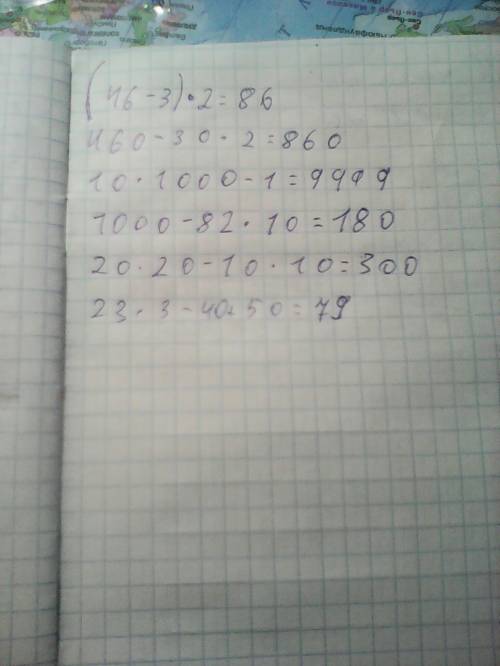 (46-3)·2=86
460-30·2=860
10·1000-1=9999
1000-82·10=180
20·20-10·10=300
23·3-40·50=79